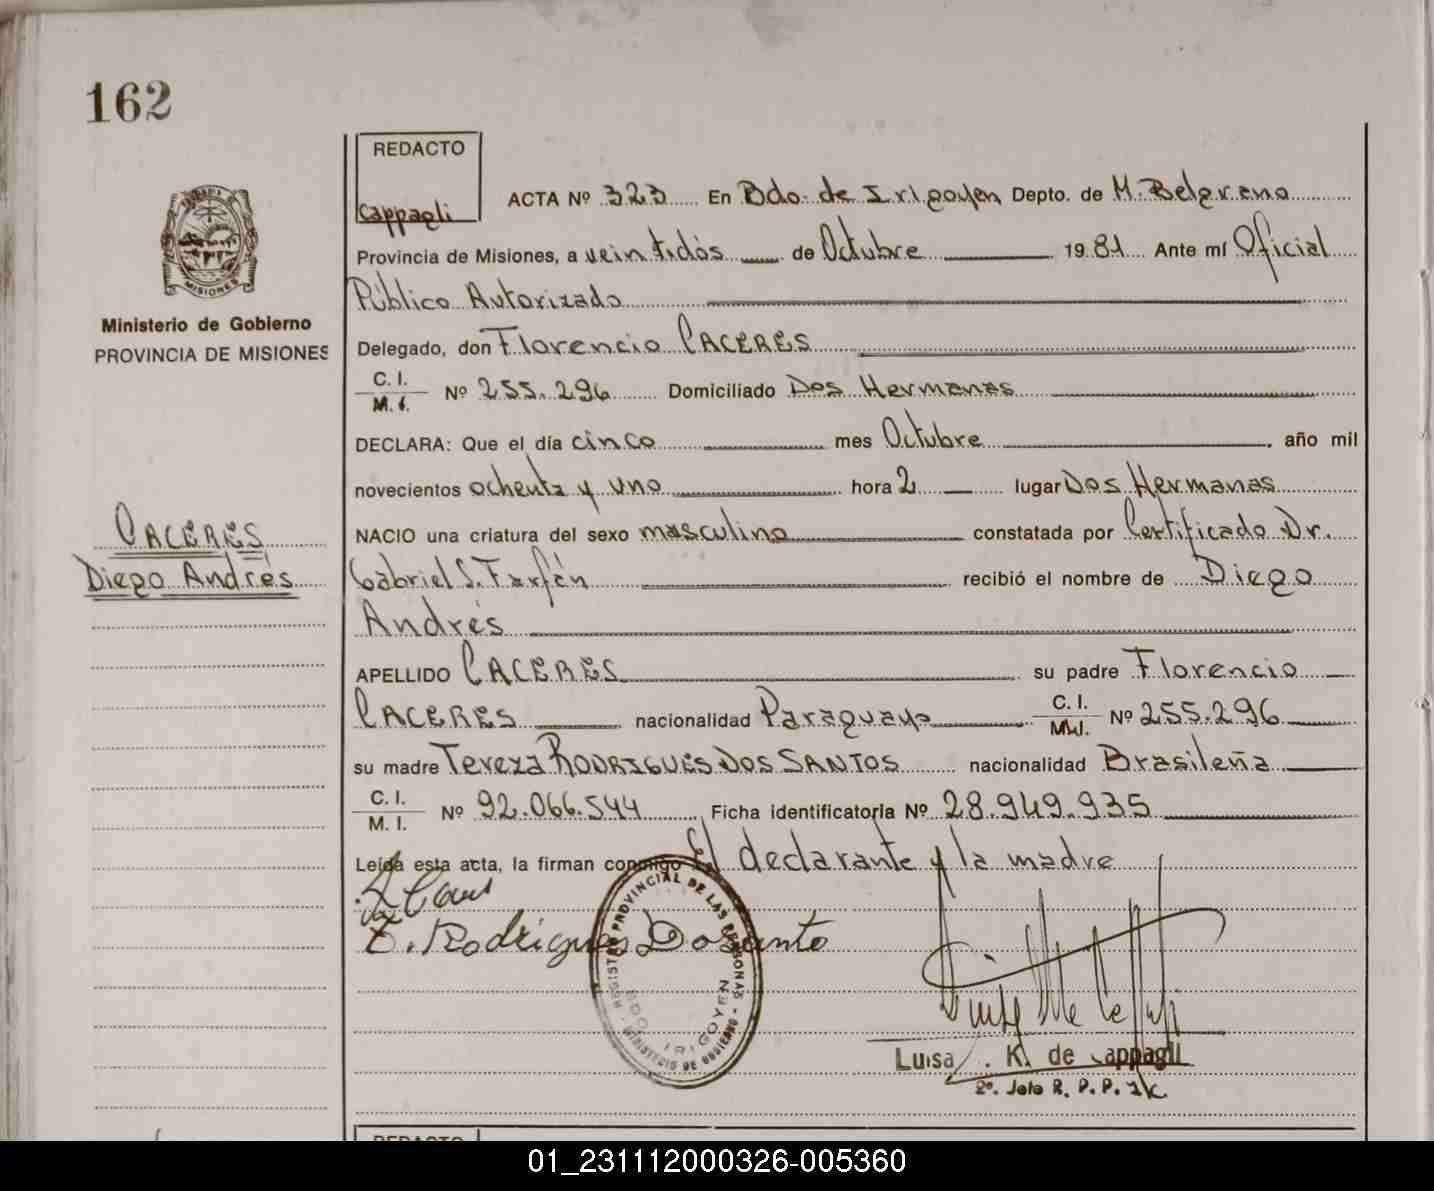 162
REDACTO
Cappagli
ACTA Nº 323 En Bdo. de Irigoyen Depto. de M. Belgrano
Provincia de Misiones, a veintidós de Octubre 1981 Ante mí Oficial
Público Autorizado
MISIONES
Ministerio de Gobierno
PROVINCIA DE MISIONES
Delegado, don Florencio CACERES
C. I.
M. I. Nº 255.296 Domiciliado Dos Hermanas
DECLARA: Que el día cinco mes Octubre, año mil
novecientos ochenta y uno hora 2 lugar Dos Hermanas
CACERES
Diego Andrés
NACIO una criatura del sexo masculino constatada por Certificado Dr.
Gabriel S. Farfán recibió el nombre de Diego
Andrés
APELLIDO CACERES su padre Florencio
CACERES nacionalidad Paraguayo C. I. M.I. Nº 255.296
su madre Tereza RODRIGUES DOS SANTOS nacionalidad Brasileña
C. I.
M. I. Nº 92.066.544 Ficha identificatoria Nº 28.949.935
Leída esta acta, la firman conmigo El declarante y la madre
T. Rodrigues Dosanto
REGISTRO PROVINCIAL DE LAS PERSONAS
BDO. IRIGOYEN
MINISTERIO DE GOBIERNO
Luisa . K. de Cappagli
2º. Jefe R. P. P.
REDACTO
01_231112000326-005360